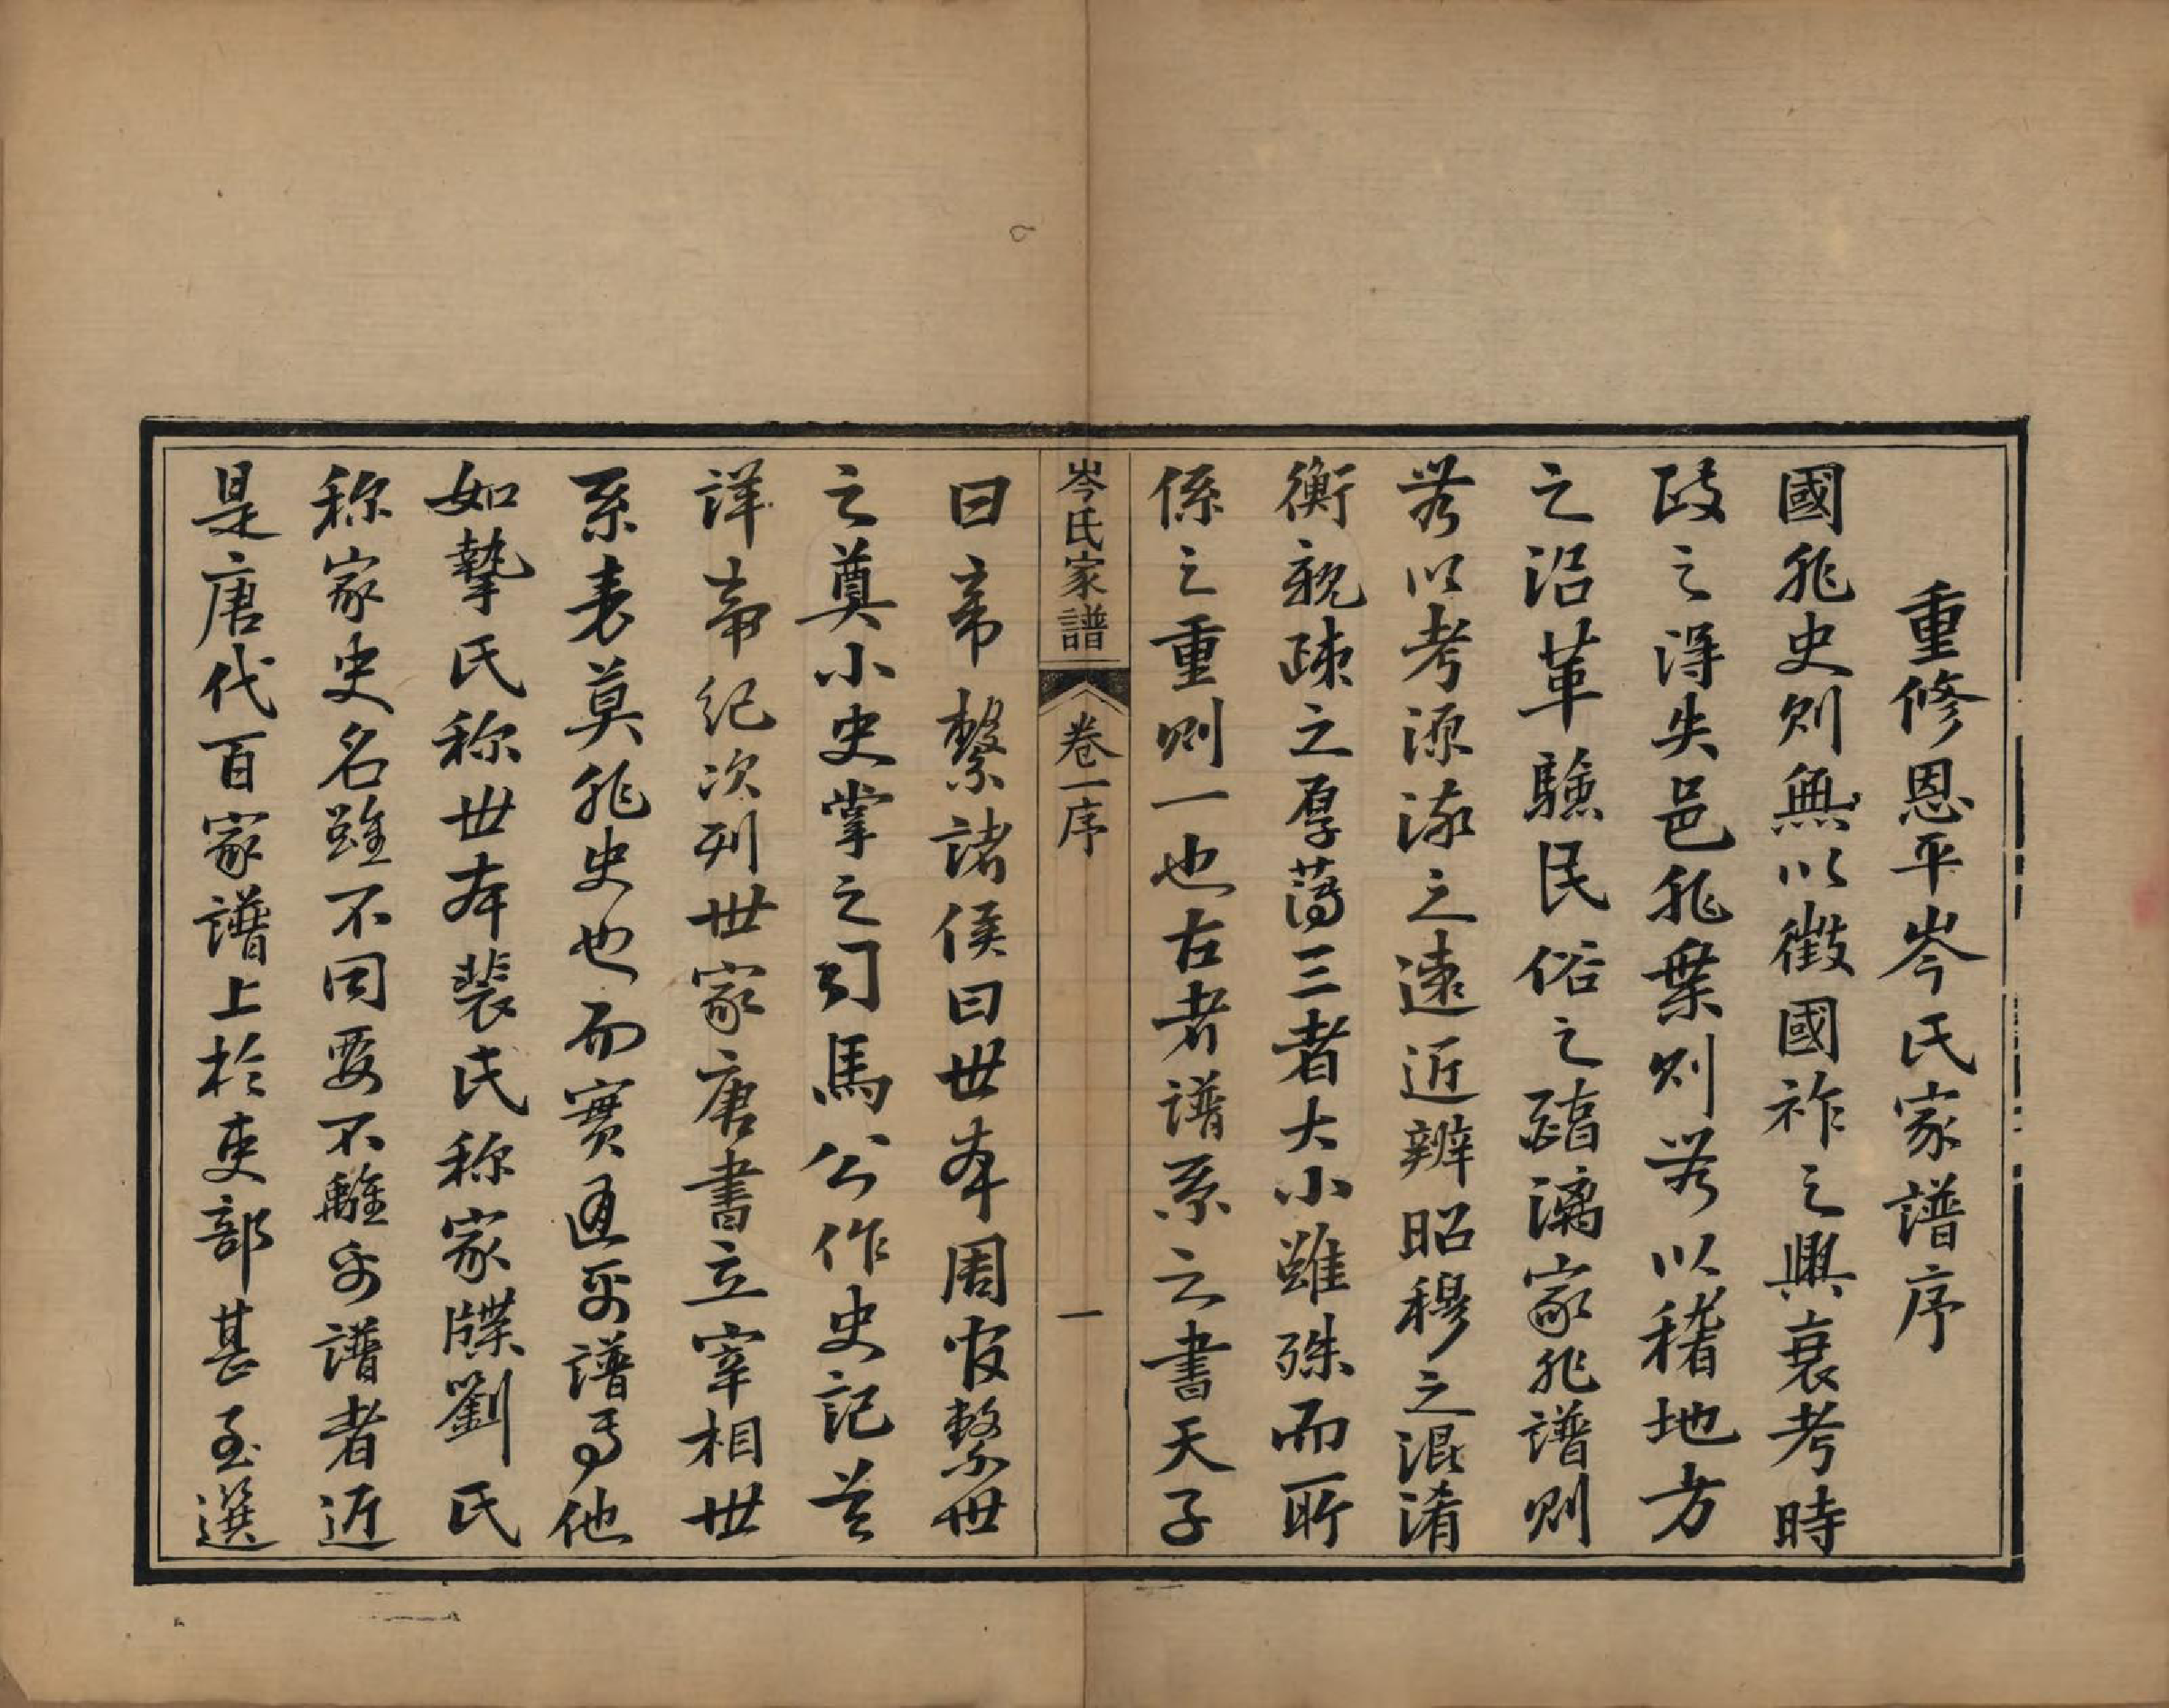 重修恩平岑氏家譜序
國非史則無以徵國祚之興衰考時
政之得失邑非業則若以稽地方
之沿革驗民俗之醇漓家非譜則
若以考源流之遠近辨昭穆之混淆
衡親疎之厚薄三者大小雖殊而所
係之重則一也古者譜系之書天子
岑氏家譜 卷一序 一
曰帝繫諸侯曰世本周官繫世
之奠小史掌之司馬公作史記首
詳帝紀次列世家唐書立宰相世
系表莫非史也而實通乎譜焉他
如摯氏称世本裴氏称家牒劉氏
称家史名雖不同要不離乎譜者近
是唐代百家譜上於吏部甚至選